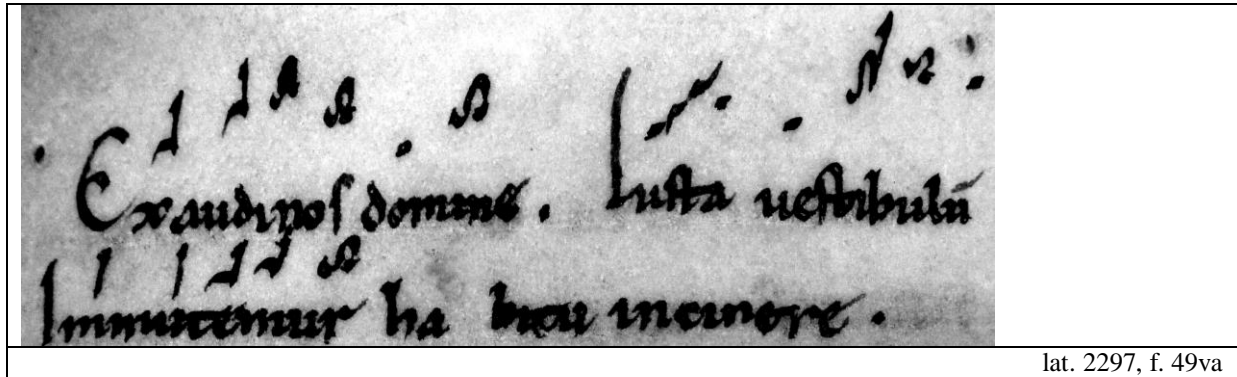 Exaudi nos domine. Iuxta uestibulū
Inmutemur ha bitu in cinere.
lat. 2297, f. 49va